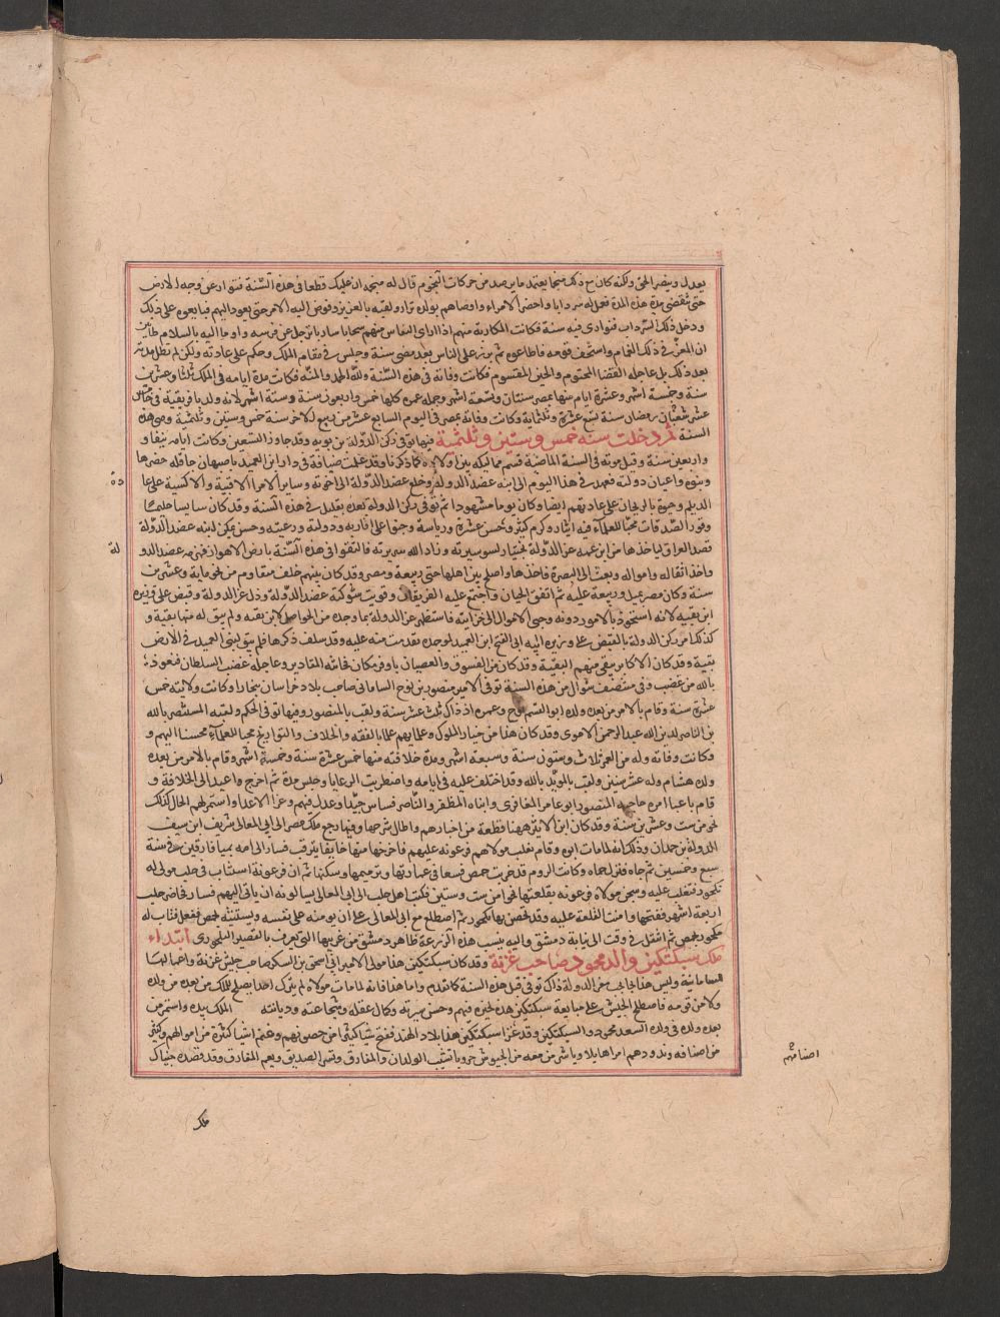 يعدل وينصر الحق ولكنه كان مع ذلك منجما يعتمد ما يرصد من حركات النجوم قال له منجمه ان عليك قطعا في هذه السنة فتوار عن وجه الارض
حتى تنقضي مدة هذه المدة فعمل له سردابا واحضر الامراء واوصاهم بولده نزار ولقبه بالعزيز وفوض اليه الامر حتى يعود اليهم فبايعوه على ذلك
ودخل ذلك السرداب فتوارى فيه سنة فكانت المغاربة منهم اذا راى الفارس منهم سحابا ساريا ترجل عن فرسه واوما اليه بالسلام ظانين
ان المعز في ذلك الغمام واستخف قومه فاطاعوه ثم برز على الناس بعد مضى سنة وجلس في مقام الملك وحكم على عادته ولكن لم تطل مدته
بعد ذلك بل عاجله القضا المحتوم والحين المقسوم فكانت وفاته في هذه السنة ولله الحمد والمنه فكانت مدة ايامه في الملك ثلثا وعشرين
سنة وخمسة اشهر وعشرة ايام منها بمصر سنتان وتسعة اشهر وجملة عمره كلها خمس واربعون سنة وستة اشهر لانه ولد بافريقية في
عشر رمضان سنة تسع عشرة وثلثماية وكانت وفاته بمصر في اليوم السابع عشر من ربيع الاخر سنة خمس وستين وثلثمية وهى هذه
السنة ثم دخلت سنه خمس وستين وثلثمية فيها توفى ركن الدولة بن بويه وقد جاوز السبعين وكانت ايامه نيفا و
واربعين سنة وقبل موته في السنة الماضية قسم ممالكه بين اولاده كما ذكرنا وقد عملت ضيافة في دار ابن العميد باصبهان حافلة حضرها
وبنوه واعيان دولته فعهد في هذا اليوم الى ابنه عضد الدولة وخلع عضد الدولة الى اخوته وساير الامرا الاقبية والاكسية على عا
ده
الديلم وحيوه بالريحان على عادتهم ايضا وكان يوما مشهودا ثم توفى ركن الدولة بعده بقليل في هذه السنة وقد كان سايسا حليما
وقورا كثير الصدقات محبا للعلماء فيه ايثار وكرم كثير وحسن عشرة ورياسة وحنو على اقاربه ودولته ورعيته وحين تمكن ابنه عضد الدولة
قصد العراق لياخذها من ابن عمه عز الدولة بختيار لسو سيرته ورداءة سريرته فالتقوا في هذه السنة بارض الاهواز فهزمه عضد الدو
لة
واخذ اثقاله وامواله وبعث الى البصرة فاخذها واصلح بين اهلها حتى ربيعة ومضر وقد كان بينهم خلف متقادم من نحو ماية وعشرين
سنة وكان مضر تميل وربيعة عليه ثم اتفق الحيان واجتمع عليه الفريقان وقويت شوكة عضد الدولة وذل عز الدولة وقبض على وزيره
ابن بقية لانه استحوذ بالامور دونه وجبى الاموال الى خزاينه فاستظهر عز الدولة بما وجده من الحواصل لابن بقيه ولم يبق له منها بقية و
كذلك امر ركن الدولة بالقبض على وزيره اليه ابى الفتح ابن العميد لموجدة تقدمت منه عليه وقد سلف ذكرها فلم يبق لبنى العميد في الارض
بقية وقد كان الاكابر يبقى منهم البقية وقد كان من الفسوق والعصيان باوفر مكان فخانته المقادير وعاجله غضب السلطان فنعوذ
بالله من غضب وفى منتصف شوال من هذه السنة توفى الامير منصور بن نوح السامانى صاحب بلاد خراسان ببخارا وكانت ولايته خمس
عشرة سنة وقام بالامر من بعده ولده ابو القسم نوح وعمره اذ ذاك ثلث عشر سنة ولقب بالمنصور وفيها توفى الحكم ولقبه المستنصر بالله
بن الناصر لدين الله عبد الرحمن الاموى وقد كان هذا من خيار الملوك وعلمايهم عالما بالفقه والخلاف والتواريخ محبا للعلماء محسنا اليهم و
وكانت وفاته وله من العمر ثلاث وستون سنة وسبعة اشهر ومدة خلافته منها خمس عشرة سنة وخمسة اشهر وقام بالامر من بعده
ولده هشام وله عشر سنين ولقب بالمويد بالله وقد اختلف عليه في ايامه واضطربت الرعايا وحبس مدة ثم اخرج واعيد الى الخلافة و
قام باعبا امره حاجبه المنصور ابو عامر المعافرى وابناه المظفر والناصر فساس جيدا وعدل فيهم وغزا الاعدا واستمر لهم الحال كذلك
نحو من ست وعشرين سنة وقد كان ابن الاثير ههنا قطعة من اخبارهم واطال شرحها وفيها رجع ملك مصر الى ابى المعالى شريف ابن سيف
الدولة بن حمدان وذلك انه لما مات ابوه وقام تغلب مولاهم فرعويه عليهم فاخرجه منها خايفا يترقب فسار الى امه بميافارقين في سنة
سبع وخمسين ثم جاه فنزل حماه وكانت الروم قد خربت حمص فسعا في عمارتها وترميمها وسكنها ثم ان فرعويه استناب في حلب مولى له
بكجور فتغلب عليه وسجن مولاه فرعويه بقلعتها نحوا من ست وستين فكتب اهل حلب الى ابى المعالى يسالونه ان ياتى اليهم فسار فحاصر حلب
اربعة اشهر ففتحها وامنت القلعة عليه وقد تحصن بها بكجور ثم اصطلح مع ابى المعالى على ان يومنه على نفسه ويستنيبه لحمص ففعل فناب له
بكجور بحمص ثم انتقل في وقت الى نيابة دمشق واليه ينسب هذه المزرعة ظاهر دمشق من غربها التى تعرف بالقصير البكجورى ابتداء
ملك سبكتكين والد محمود صاحب غزنة وقد كان سبكتكين هذا مولى الامير ابى اسحق بن البسكر صاحب جيش غزنة واعمالها
السامانية وليس هذا بحاجب معز الدولة ذاك توفى قبل هذه السنة كما تقدم واما هذا فانه لما مات مولاه لم يترك احدا يصلح للملك من بعده من ولده
ولا من قومه فاصطلح الجيش على مبايعة سبكتكين هذا لخيره فيهم وحسن سيرته وكمال عقله وشجاعته وديانته الملك بيده واستمر من
بعده ولده في ولده السعد محمود بن السبكتكين وقد غزا سبكتكين هذا بلاد الهند ففتح شيا كثيرا من حصونهم وغنم اشيا كثيرة من اموالهم وكثير
من اصنافه وندورهم امرا هايلا وباشر من معه من الجيوش حروبا تشيب الولدان والمفارق وتسر الصديق وبغم المفارق وقد قصده جيبال
اصنامهم
ملك